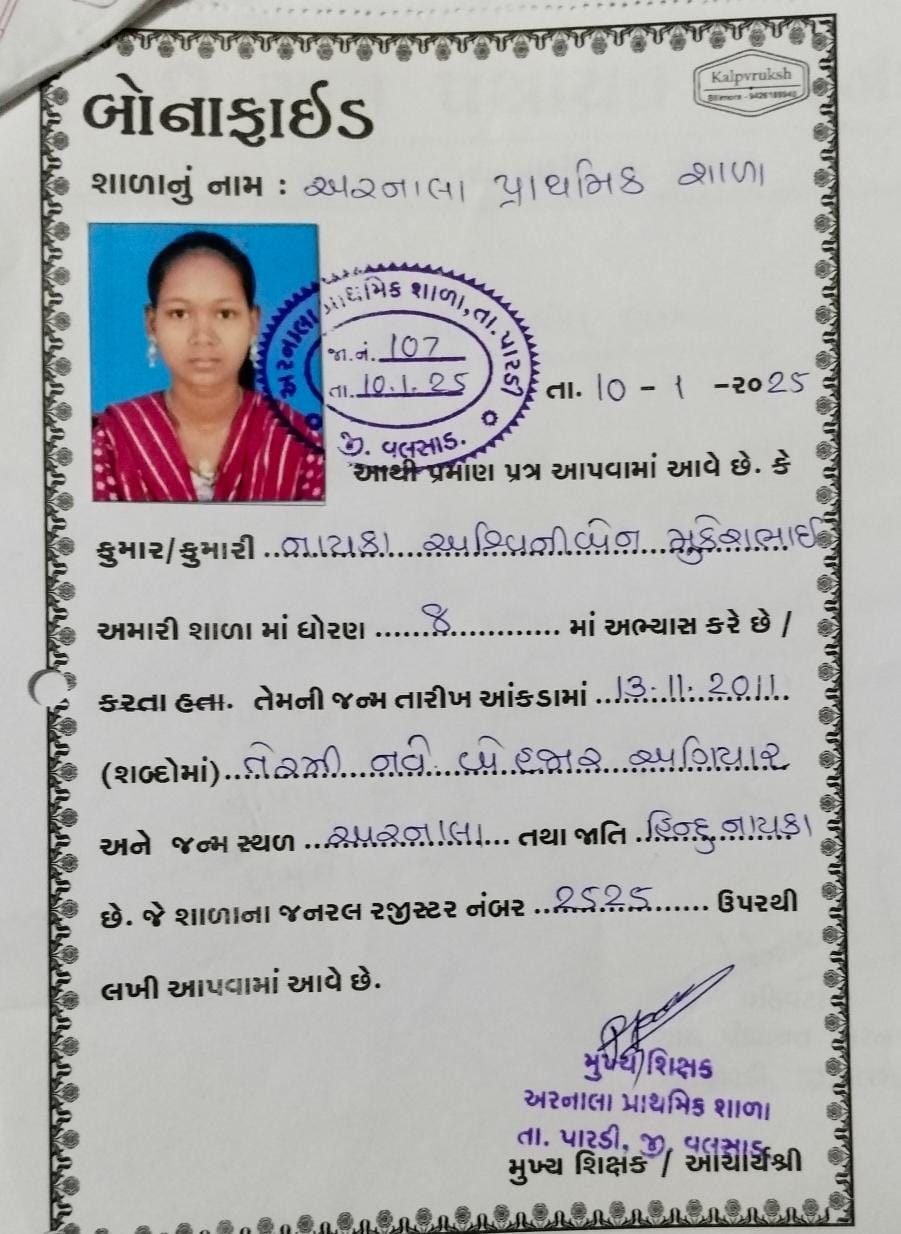 Kalpvruksh
બોનાફાઈડ
શાળાનું નામ : અરનાલા પ્રાથમિક શાળા
અરનાલા પ્રાથમિક શાળા, તા. પારડી
જા.નં. 107
તા. 10.1.25
જી. વલસાડ.
તા. 10 - 1 -૨૦25
આથી પ્રમાણ પત્ર આપવામાં આવે છે. કે
કુમાર/કુમારી ..નાયકા અશ્વિનીબેન મુકેશભાઈ
અમારી શાળા માં ધોરણ ......8.................... માં અભ્યાસ કરે છે /
કરતા હતા. તેમની જન્મ તારીખ આંકડામાં ..13.11.2011..
(શબ્દોમાં)..તેરમી નવે. બે હજાર અગિયાર
અને જન્મ સ્થળ ...અરનાલા.... તથા જાતિ .હિન્દુ નાયકા
છે. જે શાળાના જનરલ રજીસ્ટર નંબર ..2525....... ઉપરથી
લખી આપવામાં આવે છે.
મુખ્ય શિક્ષક
અરનાલા પ્રાથમિક શાળા
તા. પારડી, જી. વલસાડ
મુખ્ય શિક્ષક / આચાર્યશ્રી